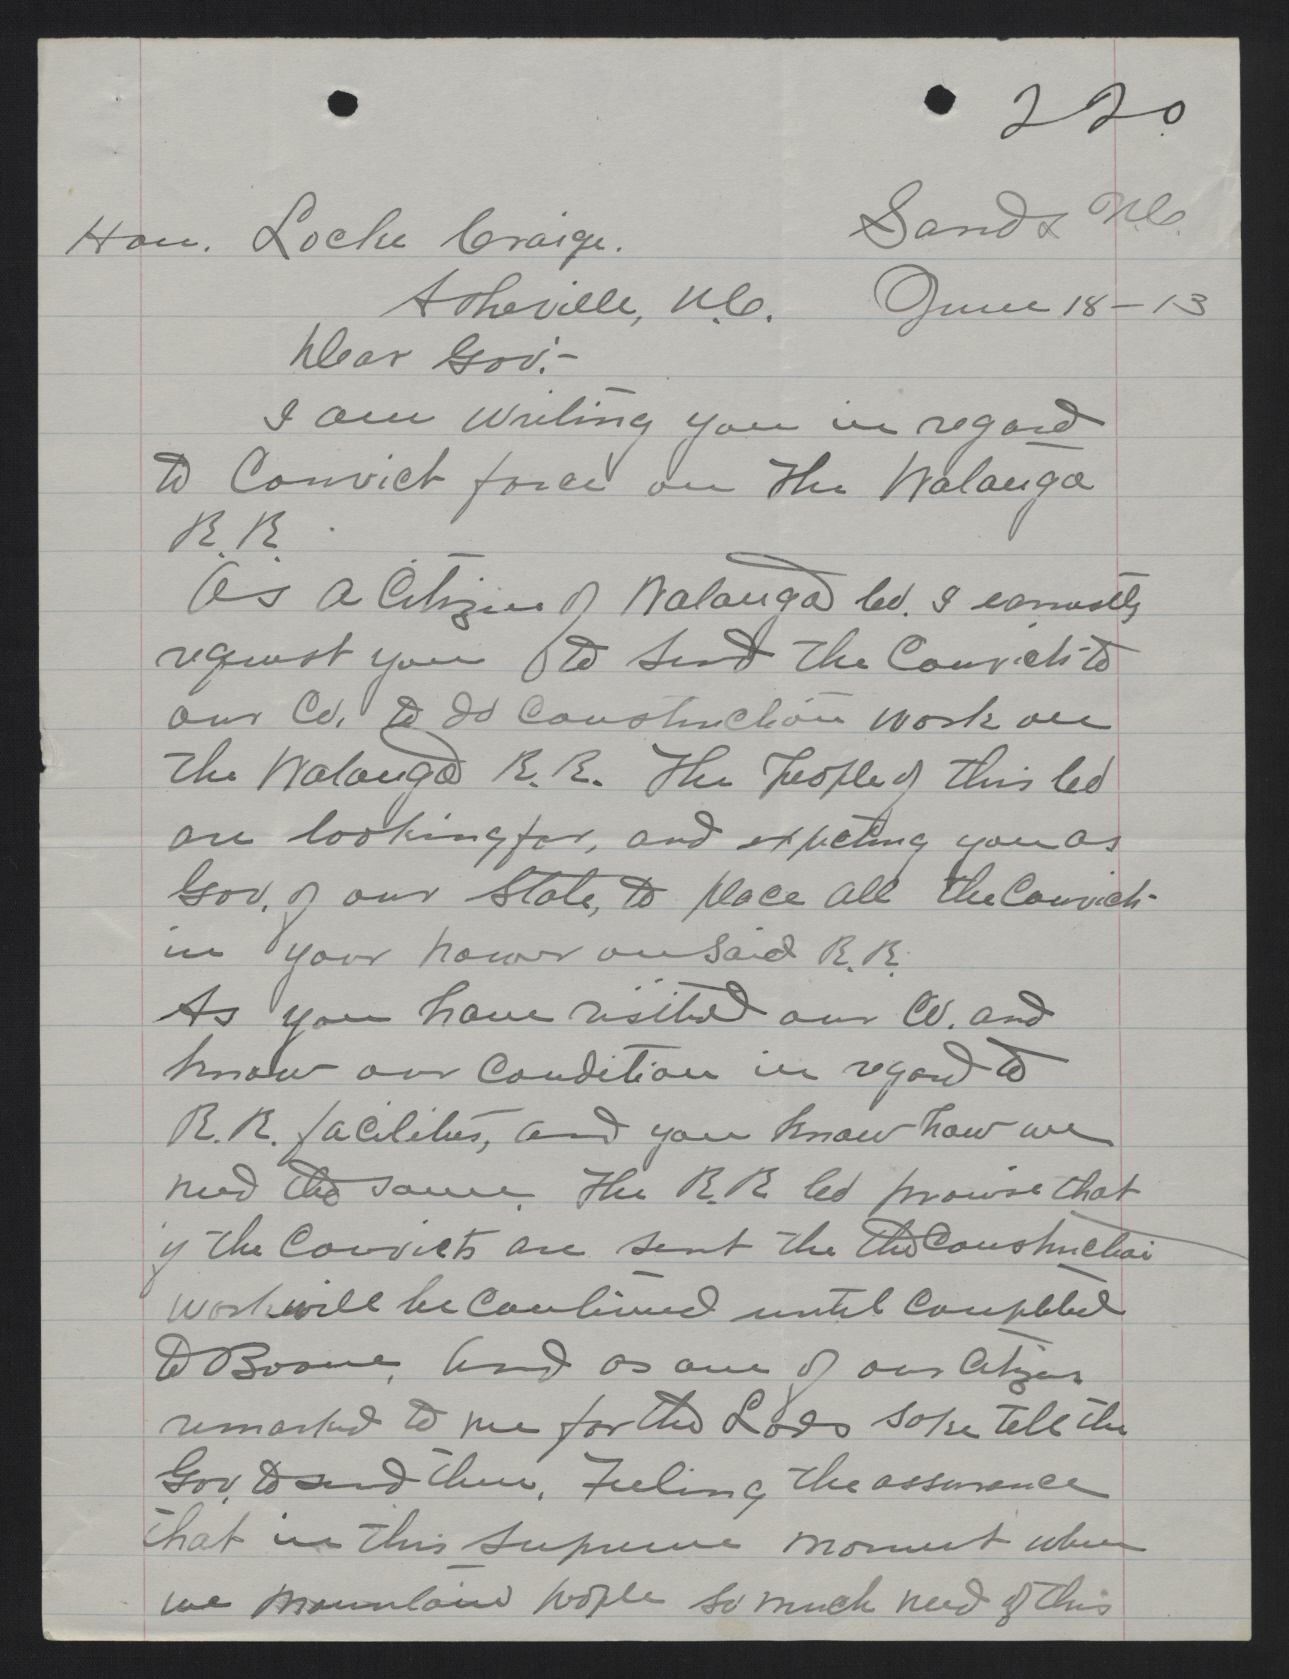 220
Sands N.C.
Hon. Locke Craige.
Asheville, N.C. June 18-13
Dear Gov.-
I am writing you in regard
to Convict force on the Watauga
R.R.
As a Citizen of Watauga Co. I earnestly
request you to send the Convicts to
our Co. to do construction work on
the Watauga R.R. The People of this Co
are looking for, and expecting you as
Gov. of our State, to place all the Convicts
in your power on said R.R.
As you have visited our Co. and
know our condition in regard to
R.R. facilities, and you know how we
need the same. The R.R Co promise that
if the Convicts are sent the the Construction
work will be continued until completed
to Boone, And as one of our Citizens
remarked to me for the Lords sake tell the
Gov. to send them. Feeling the assurance
that in this supreme moment when
we mountain people so much need of this